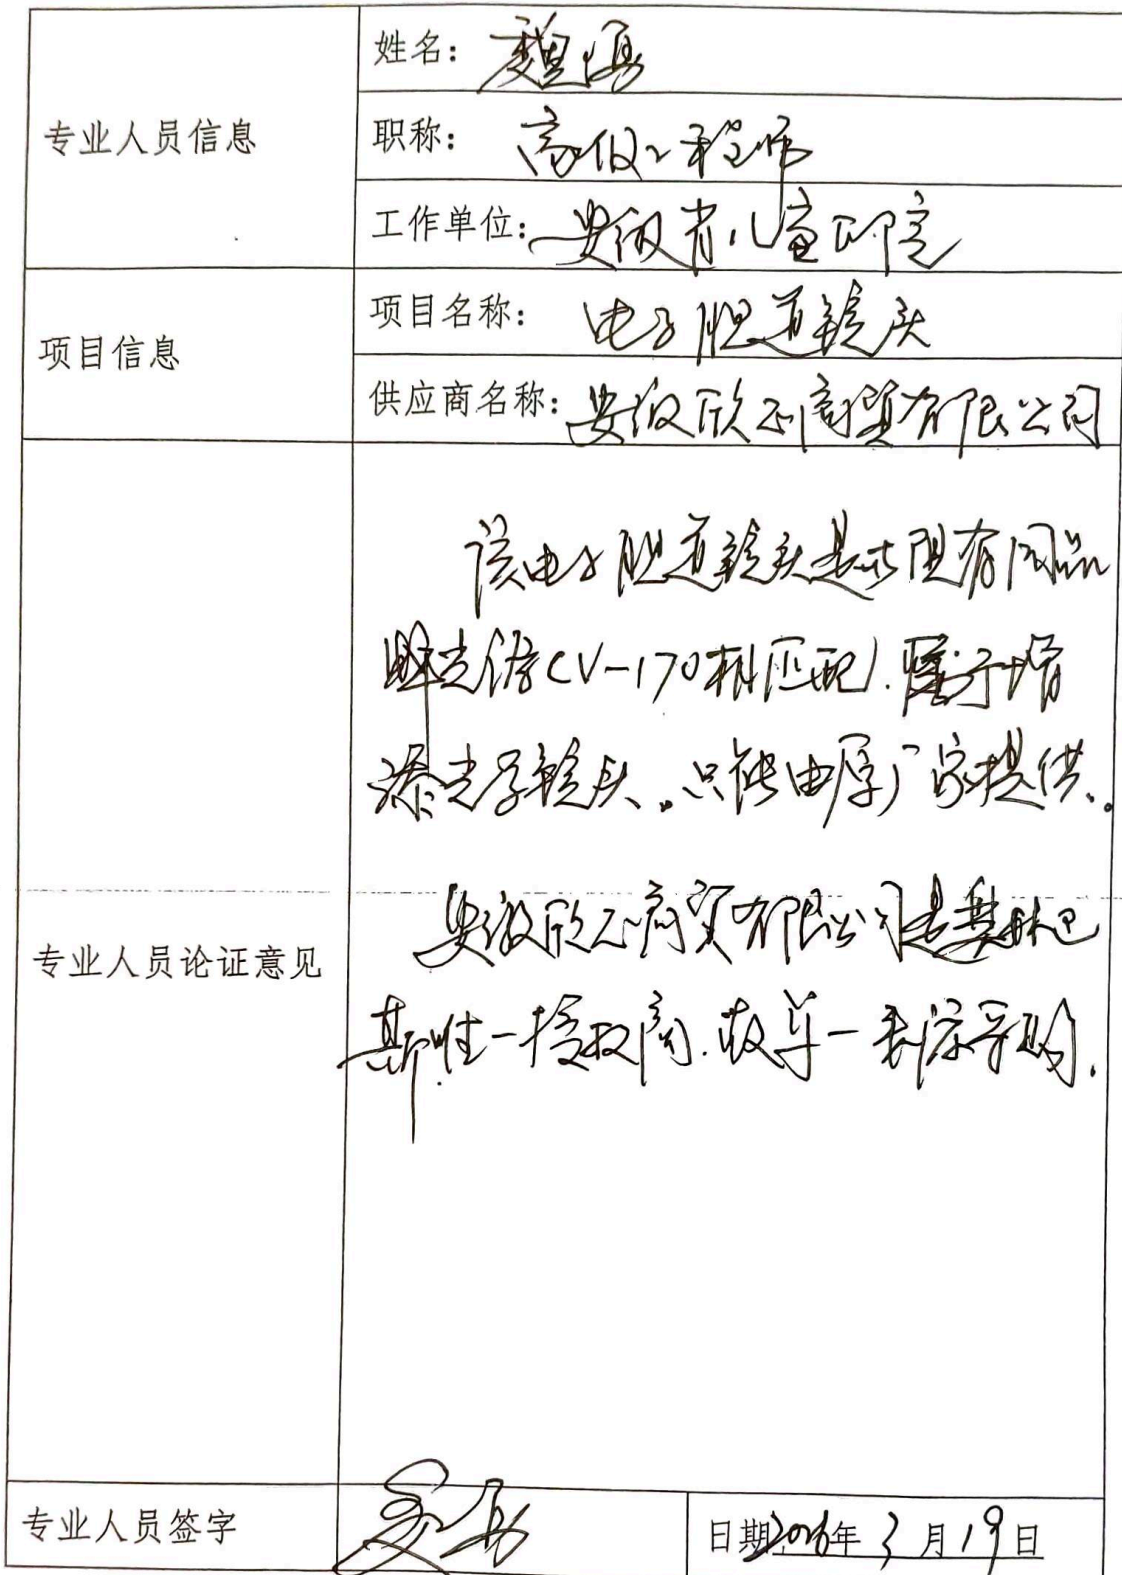 专业人员信息
姓名：魏
职称：高级工程师
工作单位：安徽省儿童医院
项目信息
项目名称：电子胆道镜头
供应商名称：安徽欣正商贸有限公司
专业人员论证意见
该电子胆道镜头是与现有同品
牌主机CV-170相匹配.属于增
添光学镜头。只能由原厂家提供。
安徽欣正商贸有限公司是奥林巴
斯唯一授权商.故单一来源采购.
专业人员签字
日期 年3月19日